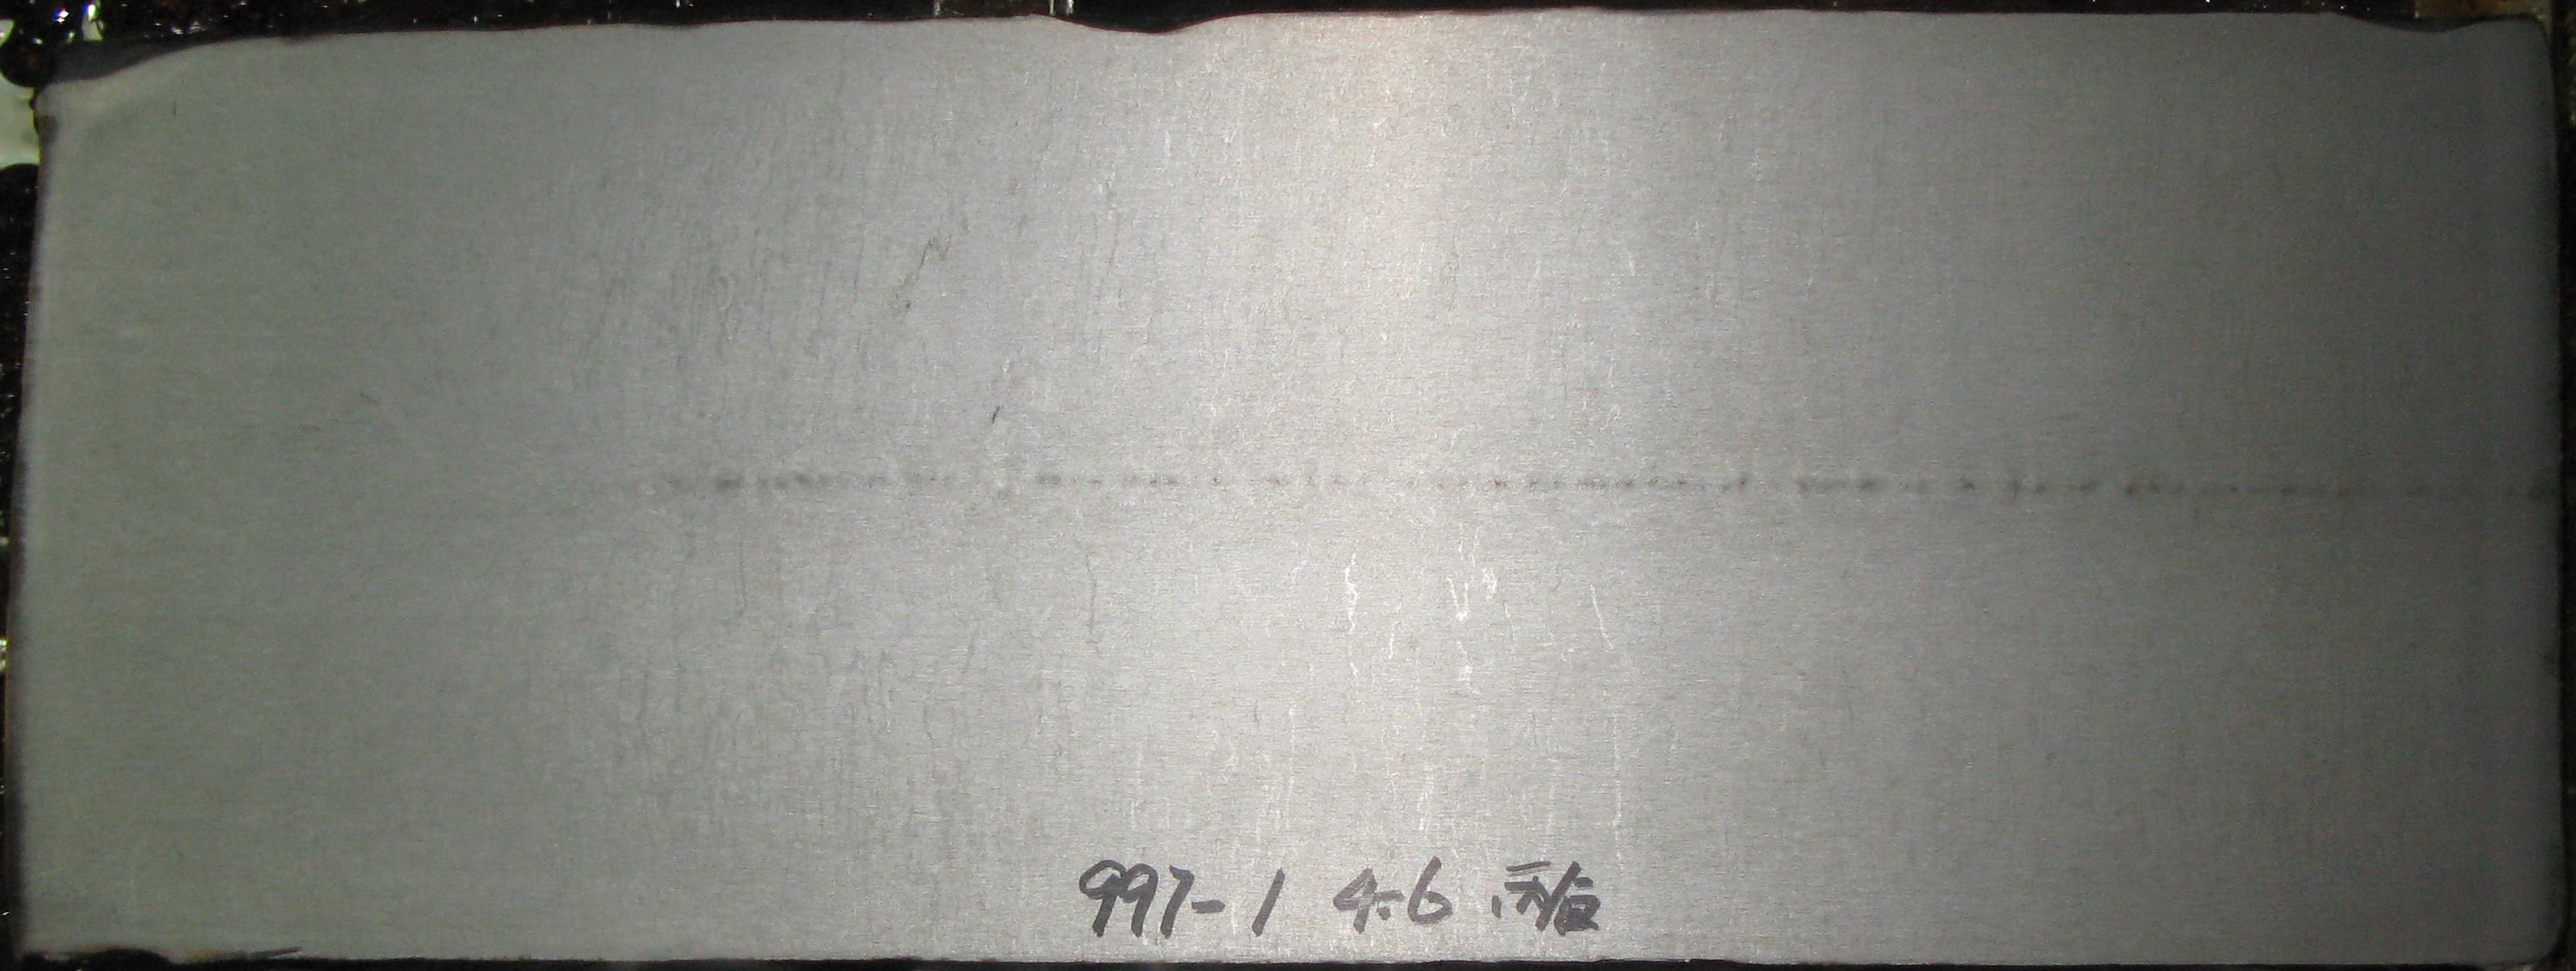 997-1 4-6